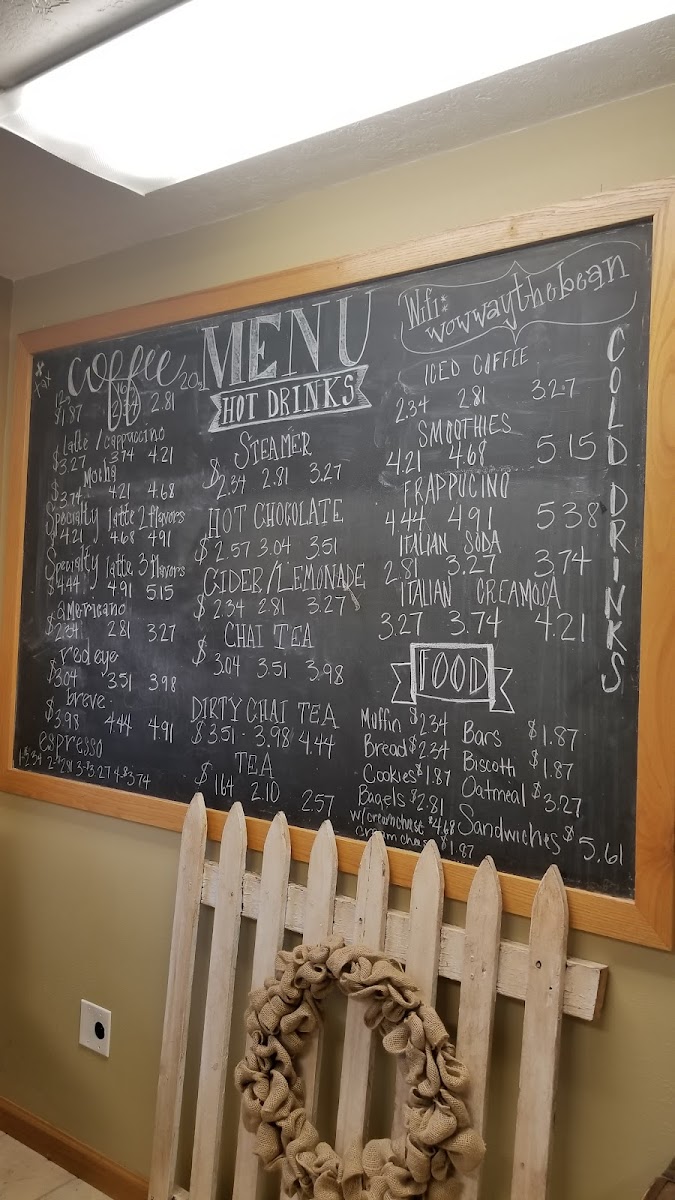 MENU
HOT DRINKS
coffee
$1.87 2.34 2.81
latte/cappuccino
$3.27 3.74 4.21
Mocha
$3.74 4.21 4.68
Specialty latte 2 flavors
$4.21 4.68 4.91
Specialty latte 3 flavors
$4.44 4.91 5.15
americano
$2.34 2.81 3.27
red eye
$3.04 3.51 3.98
breve
$3.98 4.44 4.91
espresso
1-$2.34 2-$2.81 3-$3.27 4-$3.74
STEAMER
$2.34 2.81 3.27
HOT CHOCOLATE
$2.57 3.04 3.51
CIDER/LEMONADE
$2.34 2.81 3.27
CHAI TEA
$3.04 3.51 3.98
DIRTY CHAI TEA
$3.51 3.98 4.44
TEA
$1.64 2.10 2.57
Wifi:
wowwaythebean
COLD DRINKS
ICED COFFEE
2.34 2.81 3.27
SMOOTHIES
4.21 4.68 5.15
FRAPPUCINO
4.44 4.91 5.38
ITALIAN SODA
2.81 3.27 3.74
ITALIAN CREAMOSA
3.27 3.74 4.21
FOOD
Muffin $2.34
Bread $2.34
Cookies $1.87
Bagels $2.81
w/creamchest $4.68
cream chees $1.87
Bars $1.87
Biscotti $1.87
Oatmeal $3.27
Sandwiches $5.61